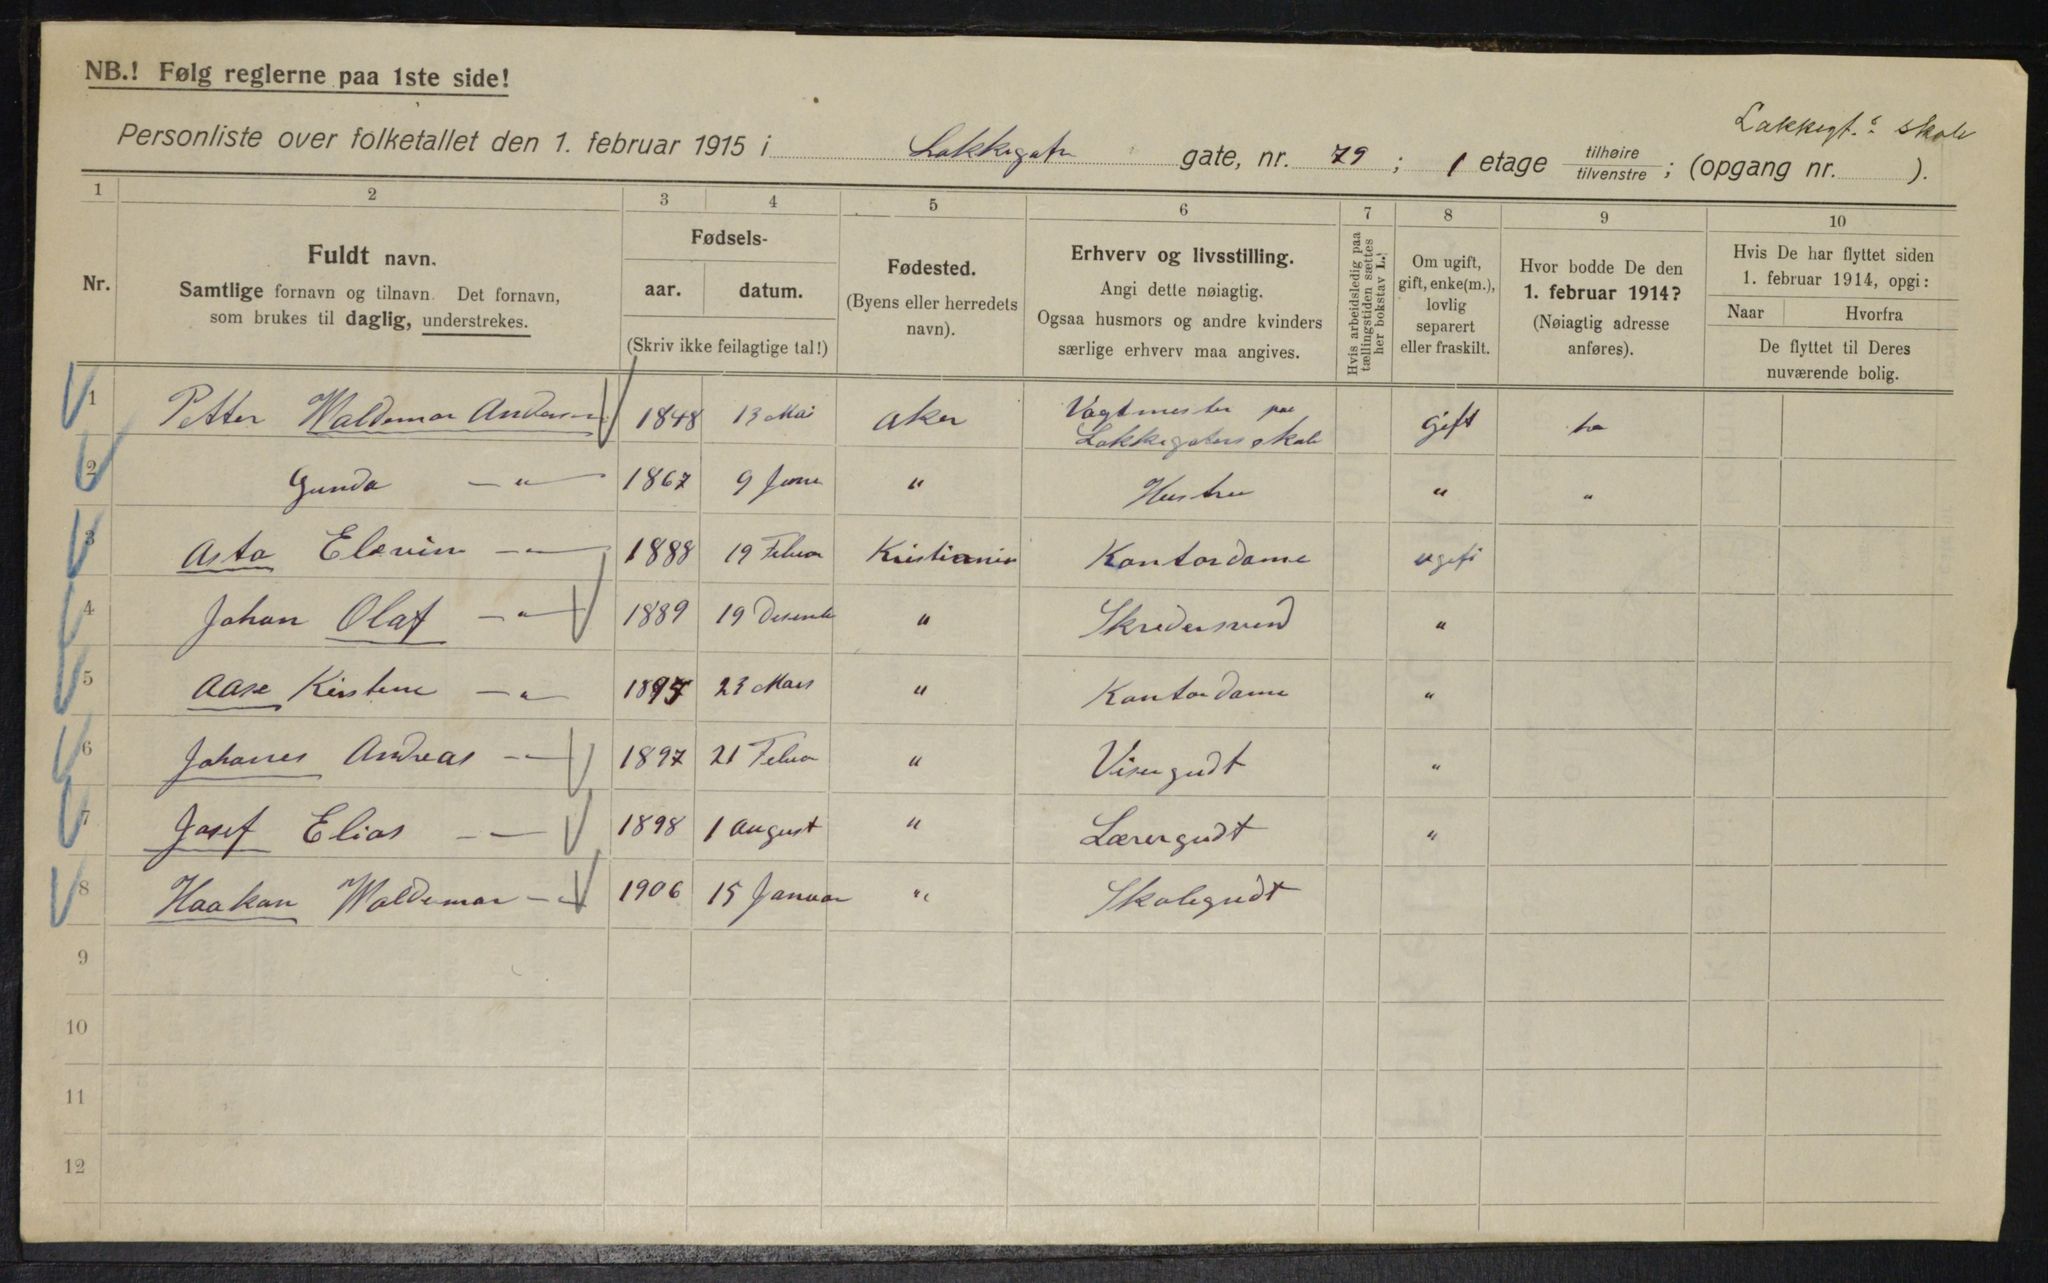 NB.! Følg reglerne paa 1ste side!
Lakkegt.s skole
Personliste over folketallet den 1. februar 1915 i Lakkegaten gate, nr. 79; 1 etage tilhøire/tilvenstre; (opgang nr. ).
1 2 3 4 5 6 7 8 9 10
Nr.
Fuldt navn.
Samtlige fornavn og tilnavn. Det fornavn,
som brukes til daglig, understrekes.
Fødsels-
aar. datum.
(Skriv ikke feilagtige tal!)
Fødested.
(Byens eller herredets
navn).
Erhverv og livsstilling.
Angi dette nøiagtig.
Ogsaa husmors og andre kvinders
særlige erhverv maa angives.
Hvis arbeidsledig paa
tællingstiden sættes
her bokstav L.
Om ugift,
gift, enke(m.),
lovlig
separert
eller fraskilt.
Hvor bodde De den
1. februar 1914?
(Nøiagtig adresse
anføres).
Hvis De har flyttet siden
1. februar 1914, opgi:
Naar Hvorfra
De flyttet til Deres
nuværende bolig.
1 Petter Waldemar Andersen 1848 13 Mai Aker Vagtmester paa Lakkegatens skole Gift
2 Gunda — " — 1867 9 " Hustru " "
3 Asta — " — 1888 19 Februar Kristiania Kontordame ugift
4 Johan Olaf — " — 1889 19 Desember " Skredersvend "
5 Aase Kirstine — " — 1895 23 Mars " Kontordame "
6 Johannes Andreas — " — 1897 21 Februar " Visergudt "
7 Josef Elias — " — 1898 1 August " Lærergudt "
8 Haakon Waldemar — " — 1906 15 Januar " Skolegudt
9
10
11
12